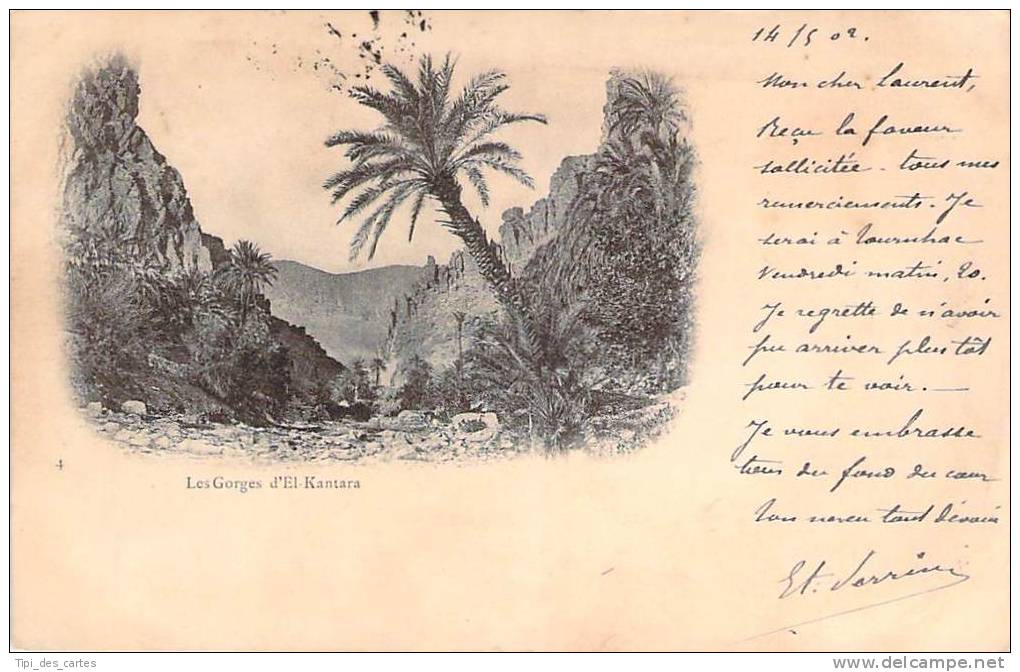 14/5 02.
Mon cher Laurent,
Reçu la faveur
sollicitée - tous mes
remerciements. Je
serai à Tournhac
Vendredi matin, 20.
Je regrette de n'avoir
pu arriver plus tôt
pour te voir. —
Je vous embrasse
tous du fond du cœur
Ton neveu tout dévoué
Et.
4
Les Gorges d'El-Kantara
Tipi_des_cartes
www.delcampe.net